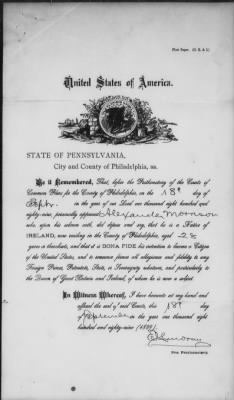 United States of America.
STATE OF PENNSYLVANIA,
City and County of Philadelphia, ss.
Be it Remembered, That, before the Prothonotary of the Courts of
Common Pleas for the County of Philadelphia, on the 18th day of
Septr. in the year of our Lord one thousand eight hundred and
eighty-nine, personally appeared Alexander Morrison
who, upon his solemn oath, did depose and say, that he is a Native of
IRELAND, now residing in the County of Philadelphia, aged 28
years or thereabouts, and that it is BONA FIDE his intention to become a Citizen
of the United States, and to renounce forever all allegiance and fidelity to any
Foreign Prince, Potentate, State, or Sovereignty whatever, and particularly to
the Queen of Great Britain and Ireland, of whom he is now a subject.
In Witness Whereof, I have hereunto set my hand and
affixed the seal of said Courts, this 18th day
of September in the year one thousand eight
hundred and eighty-nine (1889).
Pro Prothonotary.